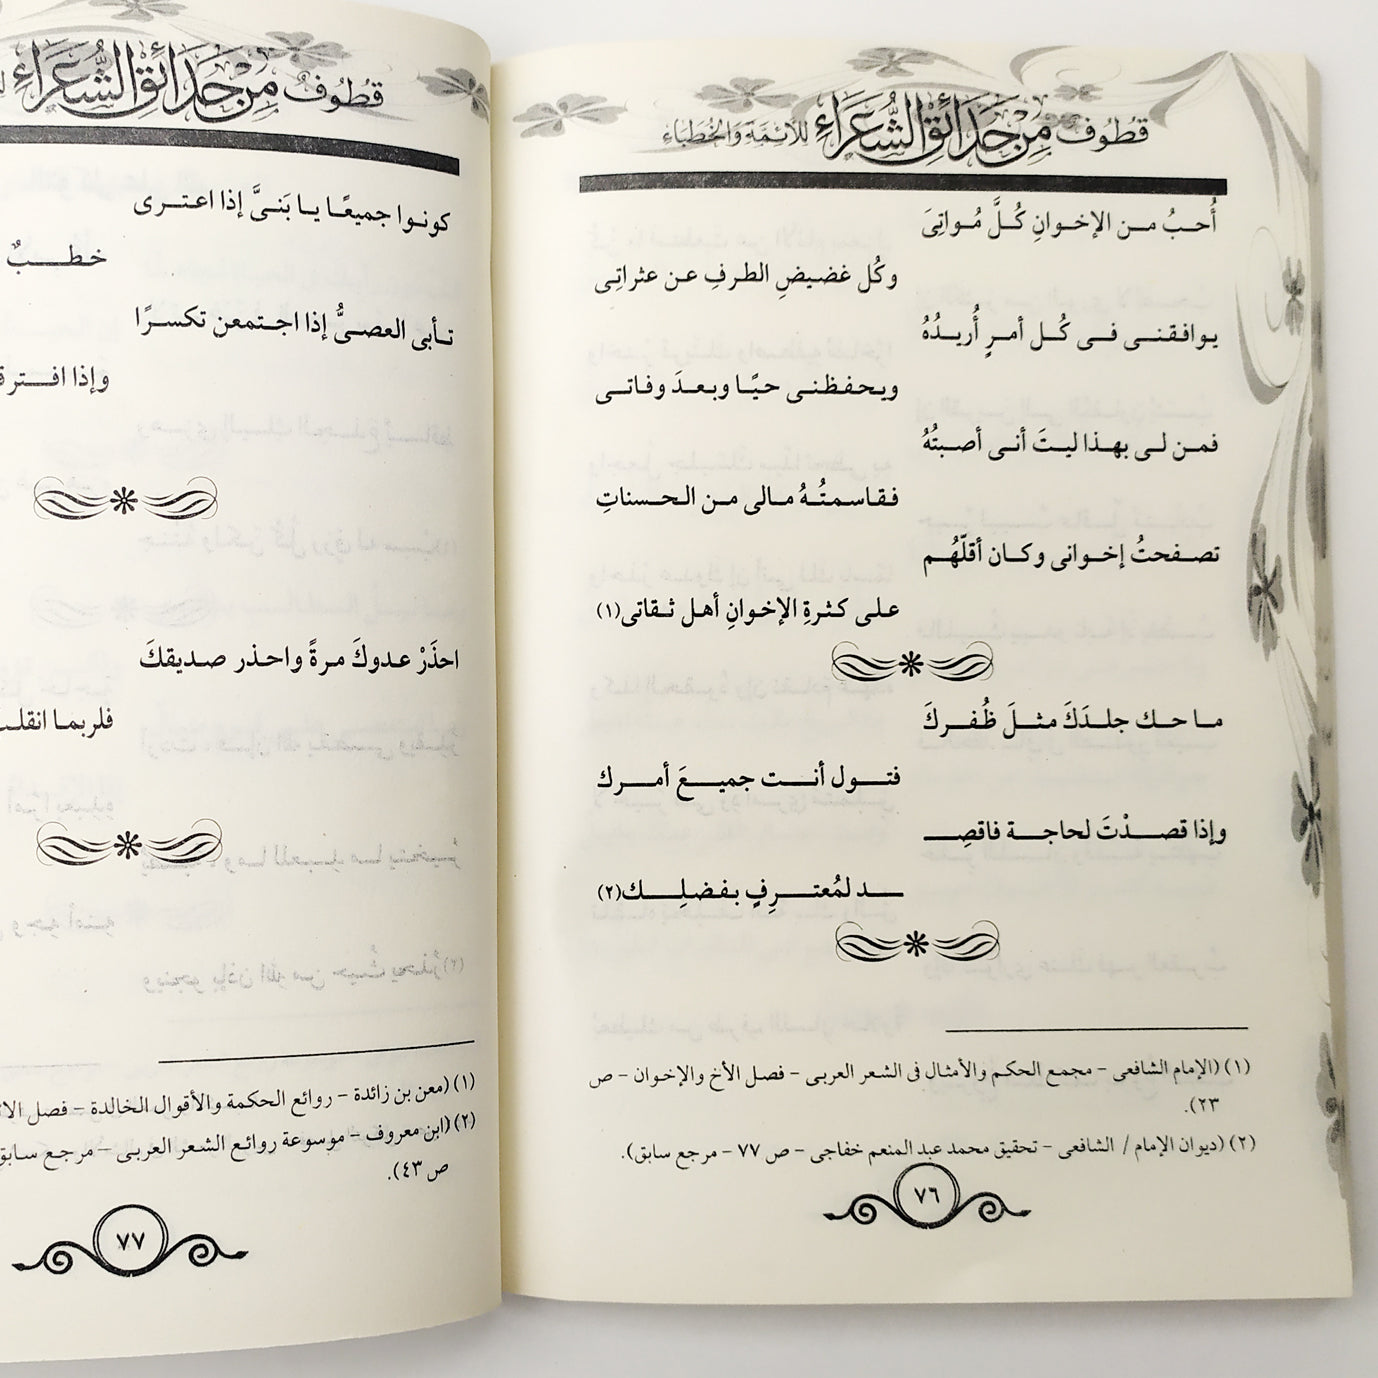 قُطُوفٌ مِنْ حَدَائِقِ الشُّعَرَاءِ لِلأَئِمَّةِ وَالخُطَبَاءِ
أُحبُ من الإخوانِ كُلَّ مُواتِىَ
وكُل غضيضِ الطرفِ عن عثراتِى
يوافقنى فى كُل أمرٍ أُريدُهُ
ويحفظنى حيًا وبعدَ وفاتى
فمن لى بهذا ليتَ أنى أصبتُهُ
فقاسمتُهُ مالى من الحسناتِ
تصفحتُ إخوانى وكان أقلّهُم
على كثرةِ الإخوانِ أهل ثقاتى(١)
ما حك جلدَكَ مثلَ ظُفركَ
فتول أنت جميعَ أمرك
وإذا قصدْتَ لحاجة فاقصِـ
ـد لمُعترِفٍ بفضلِك(٢)
(١) (الإمام الشافعى - مجمع الحكم والأمثال فى الشعر العربى - فصل الأخ والإخوان - ص
٢٣).
(٢) (ديوان الإمام/ الشافعى - تحقيق محمد عبد المنعم خفاجى - ص ٧٧ - مرجع سابق).
٧٦
قُطُوفٌ مِنْ حَدَائِقِ الشُّعَرَاءِ
كونوا جميعًا يا بَنىَّ إذا اعترى
خطبٌ
تأبى العصىُّ إذا اجتمعن تكسرًا
وإذا
احذَرْ عدوكَ مرةً واحذر صديقكَ
فلربما
(١) (معن بن زائدة - روائع الحكمة والأقوال الخالدة - فصل
(٢) (ابن معروف - موسوعة روائع الشعر العربى - مرجع سابق
ص ٤٣).
٧٧